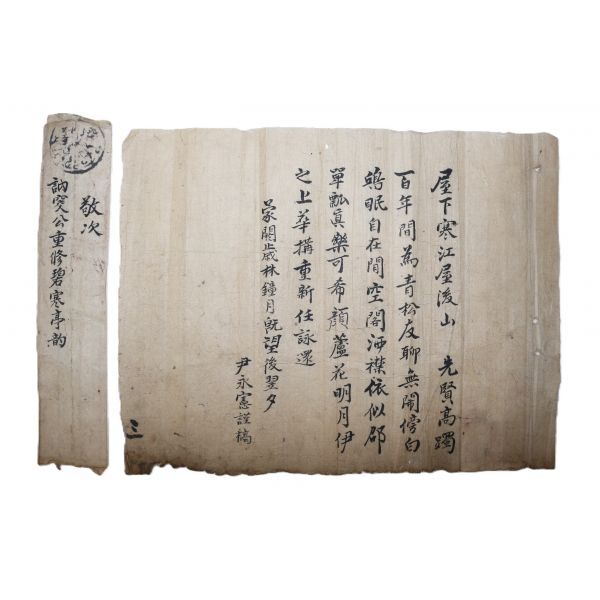 屋下寒江屋後山 先賢高躅
百年間爲青松友聊無鬧傍白
鷗眠自在閒空閣洒襟依似邵
單瓢眞樂可希顔蘆花明月伊
之上華搆重新任詠還
蒙閼歲林鐘月旣望後翌夕
尹永憲謹稿
三
敬次
訥窔公重修碧寒亭韵